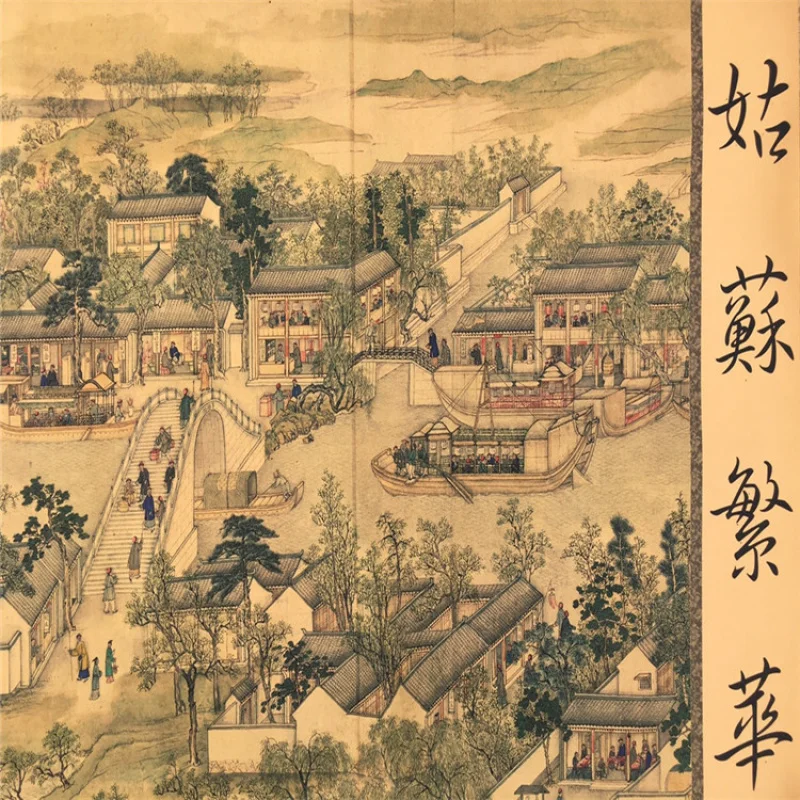 姑蘇繁華